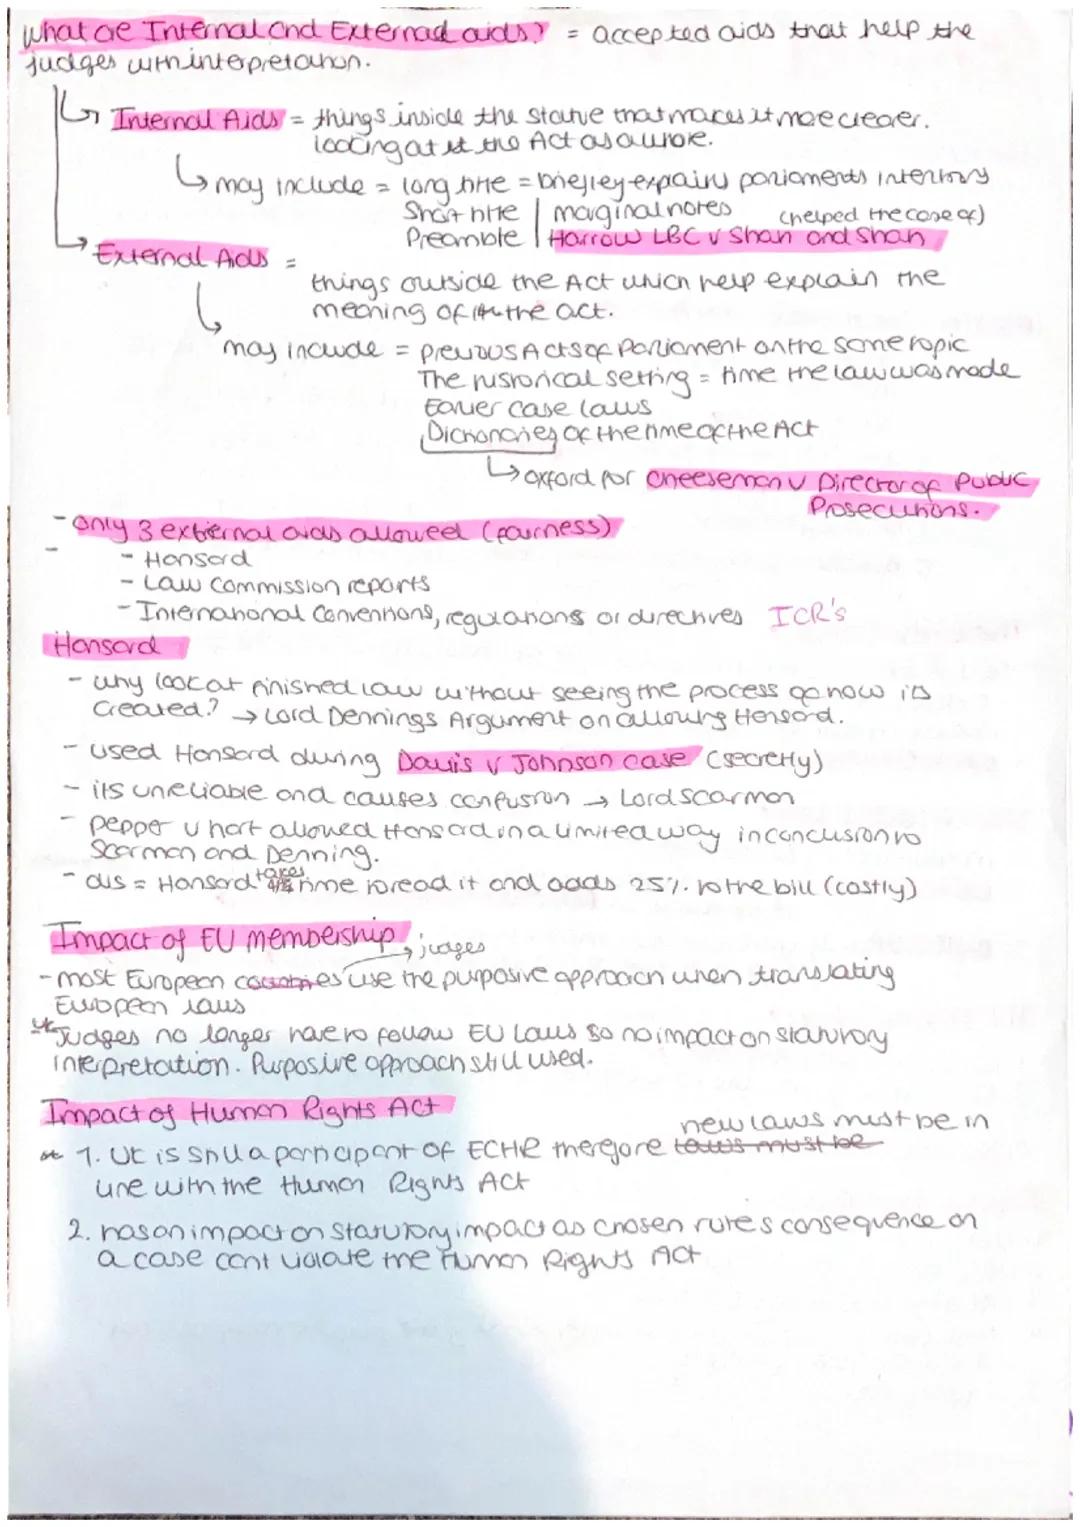 what are Internal and External aids? = accepted aids that help the
judges with interpretation.
Internal Aids = things inside the statue that makes it more clearer.
looking at the Act as a whole.
may include = long title = briefley explains parliaments intentions
Short title | marginal notes (helped the case of)
Preamble | Harrow LBC v Shah and Shah
External Aids =
things outside the Act which help explain the
meaning of the act.
may include = previous Acts of Parliament on the same topic
The historical setting = time the law was made
Earlier case laws
Dictionaries of the time of the Act
Oxford for Cheeseman v Director of Public
Prosecutions.
- only 3 external aids allowed (fairness)
- Hansard
- Law Commission reports
- International Conventions, regulations or directives ICR's
Hansard
- why look at finished law without seeing the process of how its
created? → Lord Dennings Argument on allowing Hansard.
- used Hansard during Davis v Johnson case (secretly)
- its unreliable and causes confusion → Lord Scarman
- pepper v hart allowed Hansard in a limited way in conclusion to
Scarman and Denning.
- dis = Hansard takes time to read it and adds 25% to the bill (costly)
Impact of EU membership
judges
- most European countries use the purposive approach when translating
European laws
UK Judges no longer have to follow EU Laws so no impact on statutory
interpretation. Purposive approach still used.
Impact of Human Rights Act
new laws must be in
1. UK is still a participant of ECHR therefore laws must be
line with the Human Rights Act
2. has an impact on statutory impact as chosen rules consequence on
a case cant violate the Human Rights Act